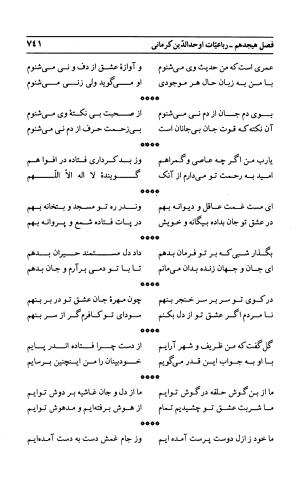 فصل هیجدهم ـ رباعیّات اوحدالدّین کرمانی ۷۴۱
عمری است که من حدیث وی می‌شنوم و آوازهٔ عشق از دف و نی می‌شنوم
با من به زبان حال هر موجودی او می‌گوید ولی زنی می‌شنوم
****
بوی دم جان از دم نی می‌شنوم از صحبت بی نکتهٔ وی می‌شنوم
آن نکته که قوت جان بی‌جانان است بی‌زحمت حرف از دم نی می‌شنوم
****
یارب من اگر چه عاصی و گمراهم وز بد کرداری فتاده در افوا هم
امید به رحمت تو می‌دارم از آنک گویندهٔ لا اله الا اللّهم
****
ای مست غمت عاقل و دیوانه بهم وندر ره تو مسجد و بتخانه بهم
در عشق تو جان بداده بیگانه و خویش در پات فتاده شمع و پروانه بهم
****
بگذار شبی که بر تو فرمان بدهم داد دل مستمند حیران بدهم
ای جان و جهان زنده بدان می‌مانم تا با تو دمی برآرم و جان بدهم
****
در کوی تو سر بر سر خنجر بنهم چون مهرهٔ جان عشق تو در بر بنهم
نا مردم اگر عشق تو از دل بکنم سودای تو کافرم گر از سر بنهم
****
گل گفت که من ظریف و شهر آرایم از دست چرا فتاده اندر پایم
با او به جواب این قدر می‌گویم خودبینان را من اینچنین برسایم
****
ما از بن گوش حلقه در گوش توایم ما از دل و جان غاشیه بر دوش توایم
ما شربت عشق تو چشیدیم تمام از هوش برفته‌ایم و مدهوش توایم
****
ما خود ز ازل دوست پرست آمده ایم وز جام غمش دست به دست آمده‌ایم